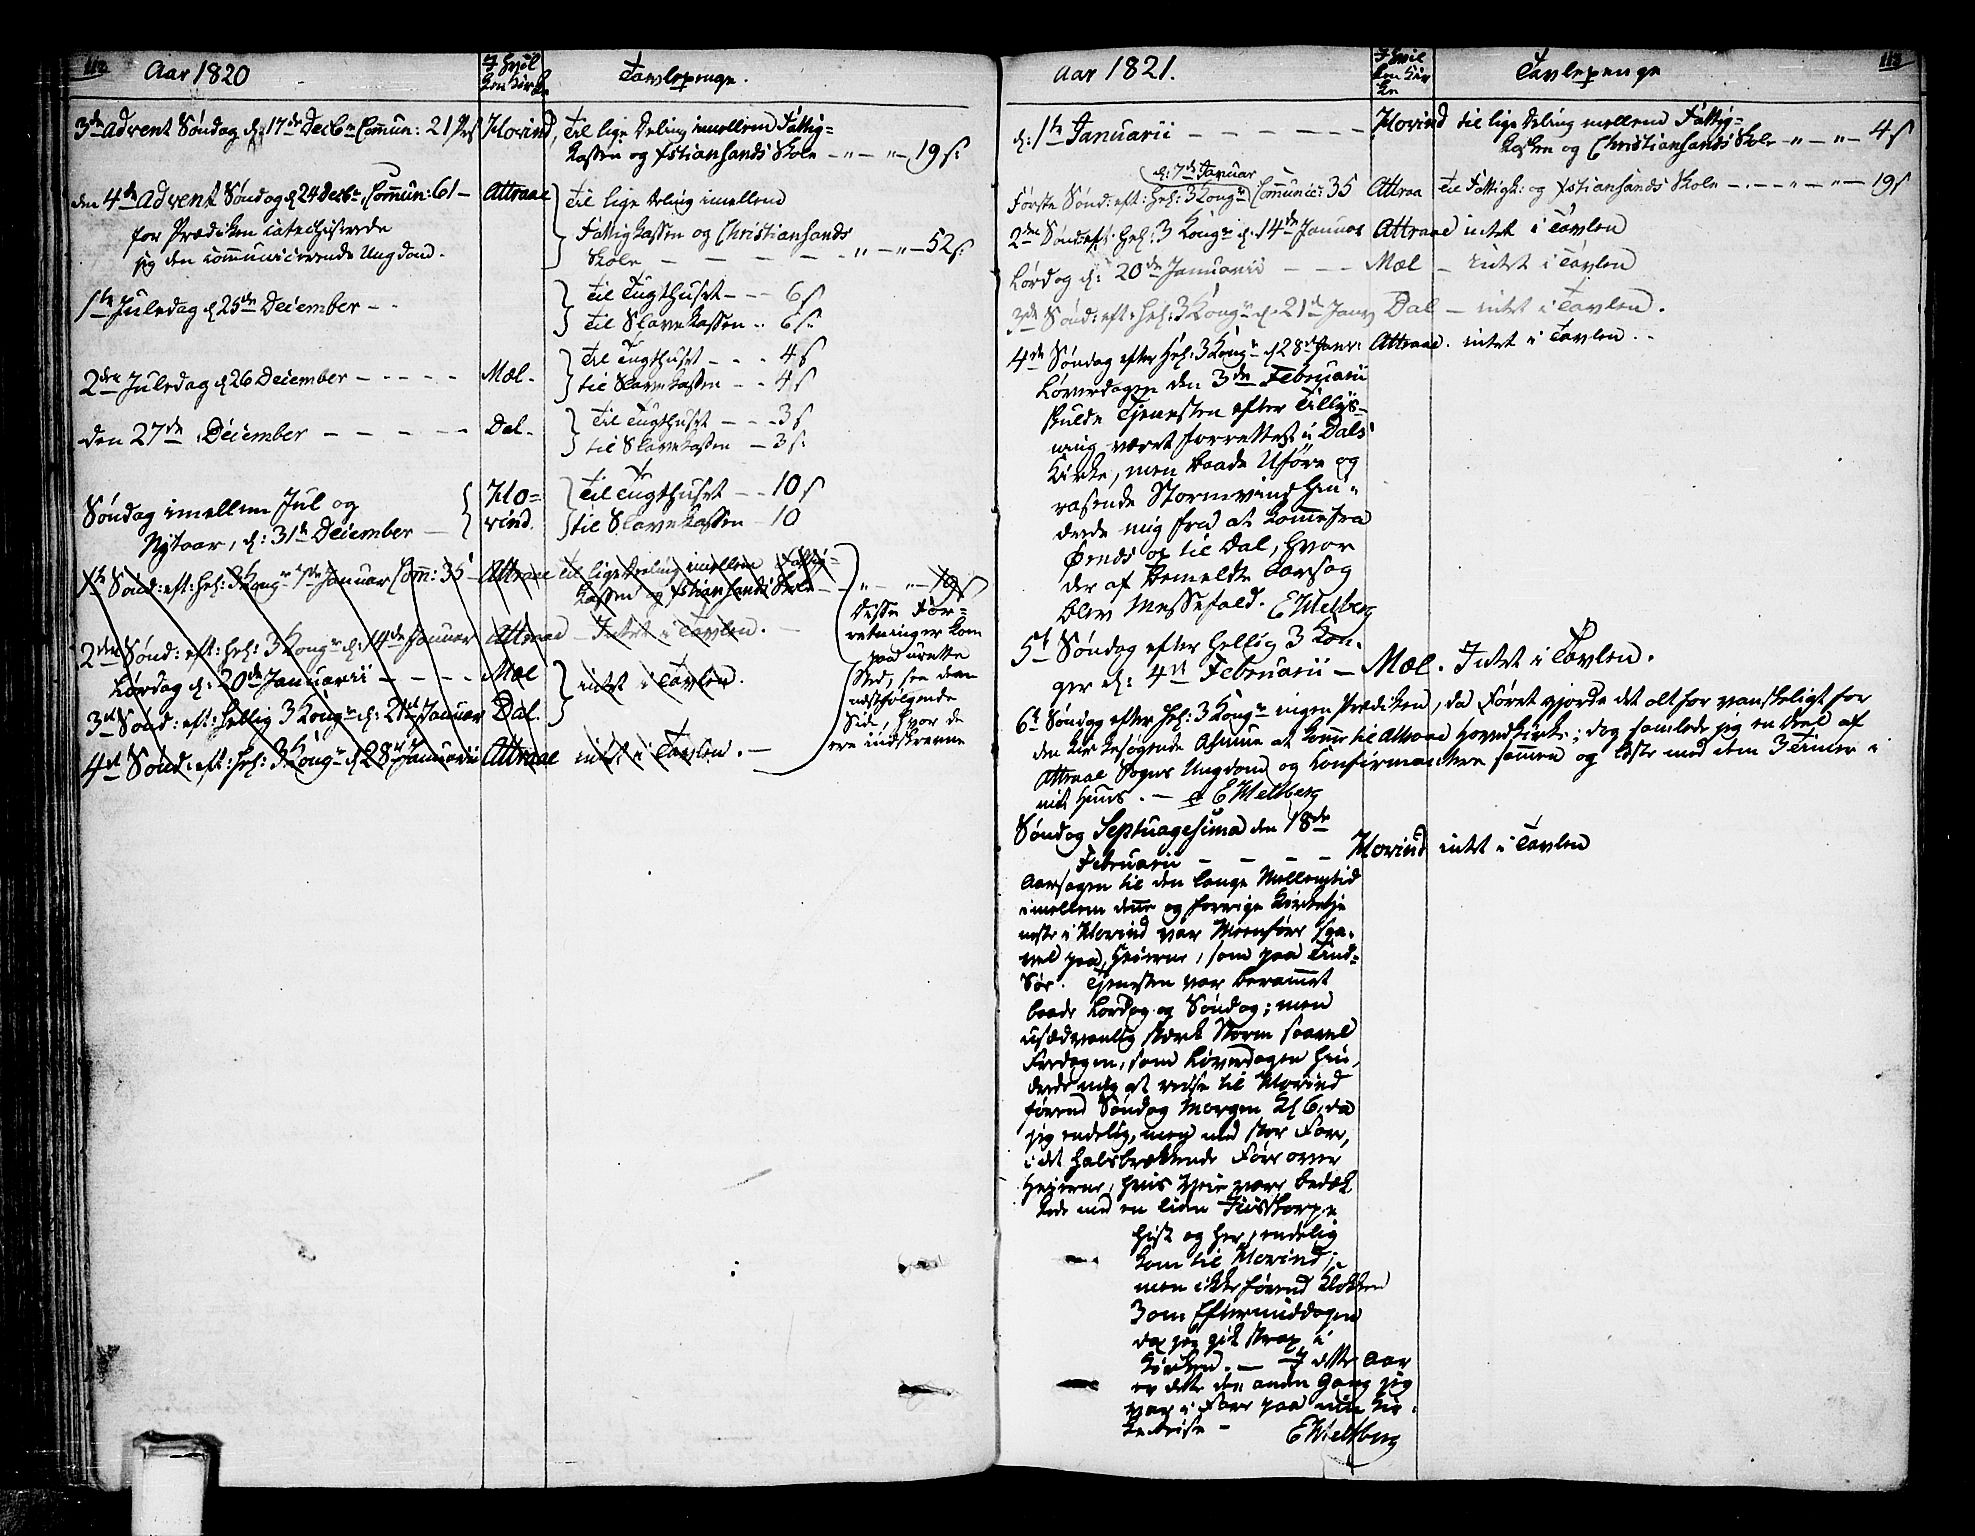 112 Aar 1820 I hvil ken Kirke Tavlepenge.
3de Advent Søndag d: 17de Decbr Com̄un: 21 Prs Hovind, Til lige Deling imellem Fattig=
Kassen og Xstiansands Skole – „ – „ – 19 s:
den 4de Advent Søndag d 24 Decbr, Com̄un: 61 – Attraae Til lige Deling imellem
for Prædiken catechiserede Fattigkassen og Christiansands
jeg den communicerende Ungdom. Skole – – – – – „ – „ – 52 s:
1ste Juledag d 25de December – – Til Tugthuset – – 6 s
Til Slavekassen .. 6 s:
2den Juledag d 26 December – – – – – Mæl. Til Tugthuset – – . 4 s
til Slavekassen – – 4 s
den 27de December – – – – – Dal. Til Tugthuset – – – 3 s
til Slavekassen – 3 s:
Søndag imellem Jul og Ho= Til Tugthuset – – 10 s
Nytaar, d: 31te December – rind. til Slavekassen – 10
1ste Sønd: eft: hel: 3 Kongr 7de Januar Com̄: 35 – Attraae til lige Deling imellem Fattig=
Kassen og Xstiansands Skole – – „ – „ – 19 s
2den Sønd: eft: hel: 3 Kongr d: 14de Januar Attraae – Intet i Tavlen. –
Lørdag d: 20de Januarii – – – – Mæl intet i Tavlen.
3die Sønd: eft: hellig 3 Kongr d: 21de Januar Dal.
4de Sønd: eft: hel: 3 Kongr d 28de Januarii Attraae intet i Tavlen. –
Disse For=
retninger kom
paa urette
Sted, see den
næstfølgende
Side, hvor de
ere indskrevne
Aar 1821. I hvil ken Kir ke Tavlepenge 113
d: 1ste Januarii – – – – – – Hovind til lige Deling mellem Fattig=
Kassen og Christiansands Skole – „ – „ – 4 s
d: 7de Januar
Første Sønd: eft: hel: 3 Kongr Com̄unic: 35 Attraa til Fattigk: og Xstiansands Skole – . – – „ – „ – 19 s
2den Sønd: eft: hel: 3 Kongr d. 14de Januar Attraae intet i Tavlen
Lørdag d: 20de Januarii – – – Mæl – intet i Tavlen
3de Sønd: eft: hel: 3 Kongr d. 21de Janr Dal – intet i Tavlen.
4de Søndag efter hel: 3 Kongr d 28de Janr: Attraae. intet i Tavlen. . .
Løverdagen den 3de Februarii
skulde Tjenesten efter Tillys=
ning været forrettet i Dals
Kirke, men baade Uføre og
rasende Stormvind hin=
drede mig fra at komme fra
Ørnes og til Dal, hvor
der af bemeldte Aarsag
blev Messefald. EWelsberg
5te Søndag efter hellig 3 Kon=
ger d: 4de Februarii – Mæl. Intet i Tavlen.
6te Søndag efter hel: 3 Kongr ingen Prædiken, da Føret gjorde det alt for vanskeligt for
den Kirkesøgende Almue at komme til Attraae Hovedkirke; dog samlede jeg en Deel af
Attraae Sogns Ungdom og Confirmantere sammen og læste med dem 3 Timer i
mit Huus. – EWelsberg
Søndag Septuagesima den 18de
Februarii – – – – Hovind intet i Tavlen
Aarsagen til den lange Mellemtid
imellem denne og forrige Kirketje
neste i Hovind var Meenføre saa=
vel paa Heierne, som paa Tind=
Sør. Tjenesten var berammet
baade Lørdag og Søndag; men
usædvanlig stærk Storm saavel
Fredagen, som Løverdagen hin=
drede mig at reise til Hovind
førend Søndag Morgen Kl 6, da
jeg endelig, men med stor Fare,
i det halsbrækkende Føre over
Heierne, hvis Veie vare bedæk
kede med en liden Iisskorpe
hist og her, endelig
kom til Hovind;
men ikke førend Klokken
3 om Eftermiddagen
da jeg gik strax i
Kirken. – I dette Aar
er dette den anden Gang jeg
var i Fare paa min Kir=
kereise – EWelsberg